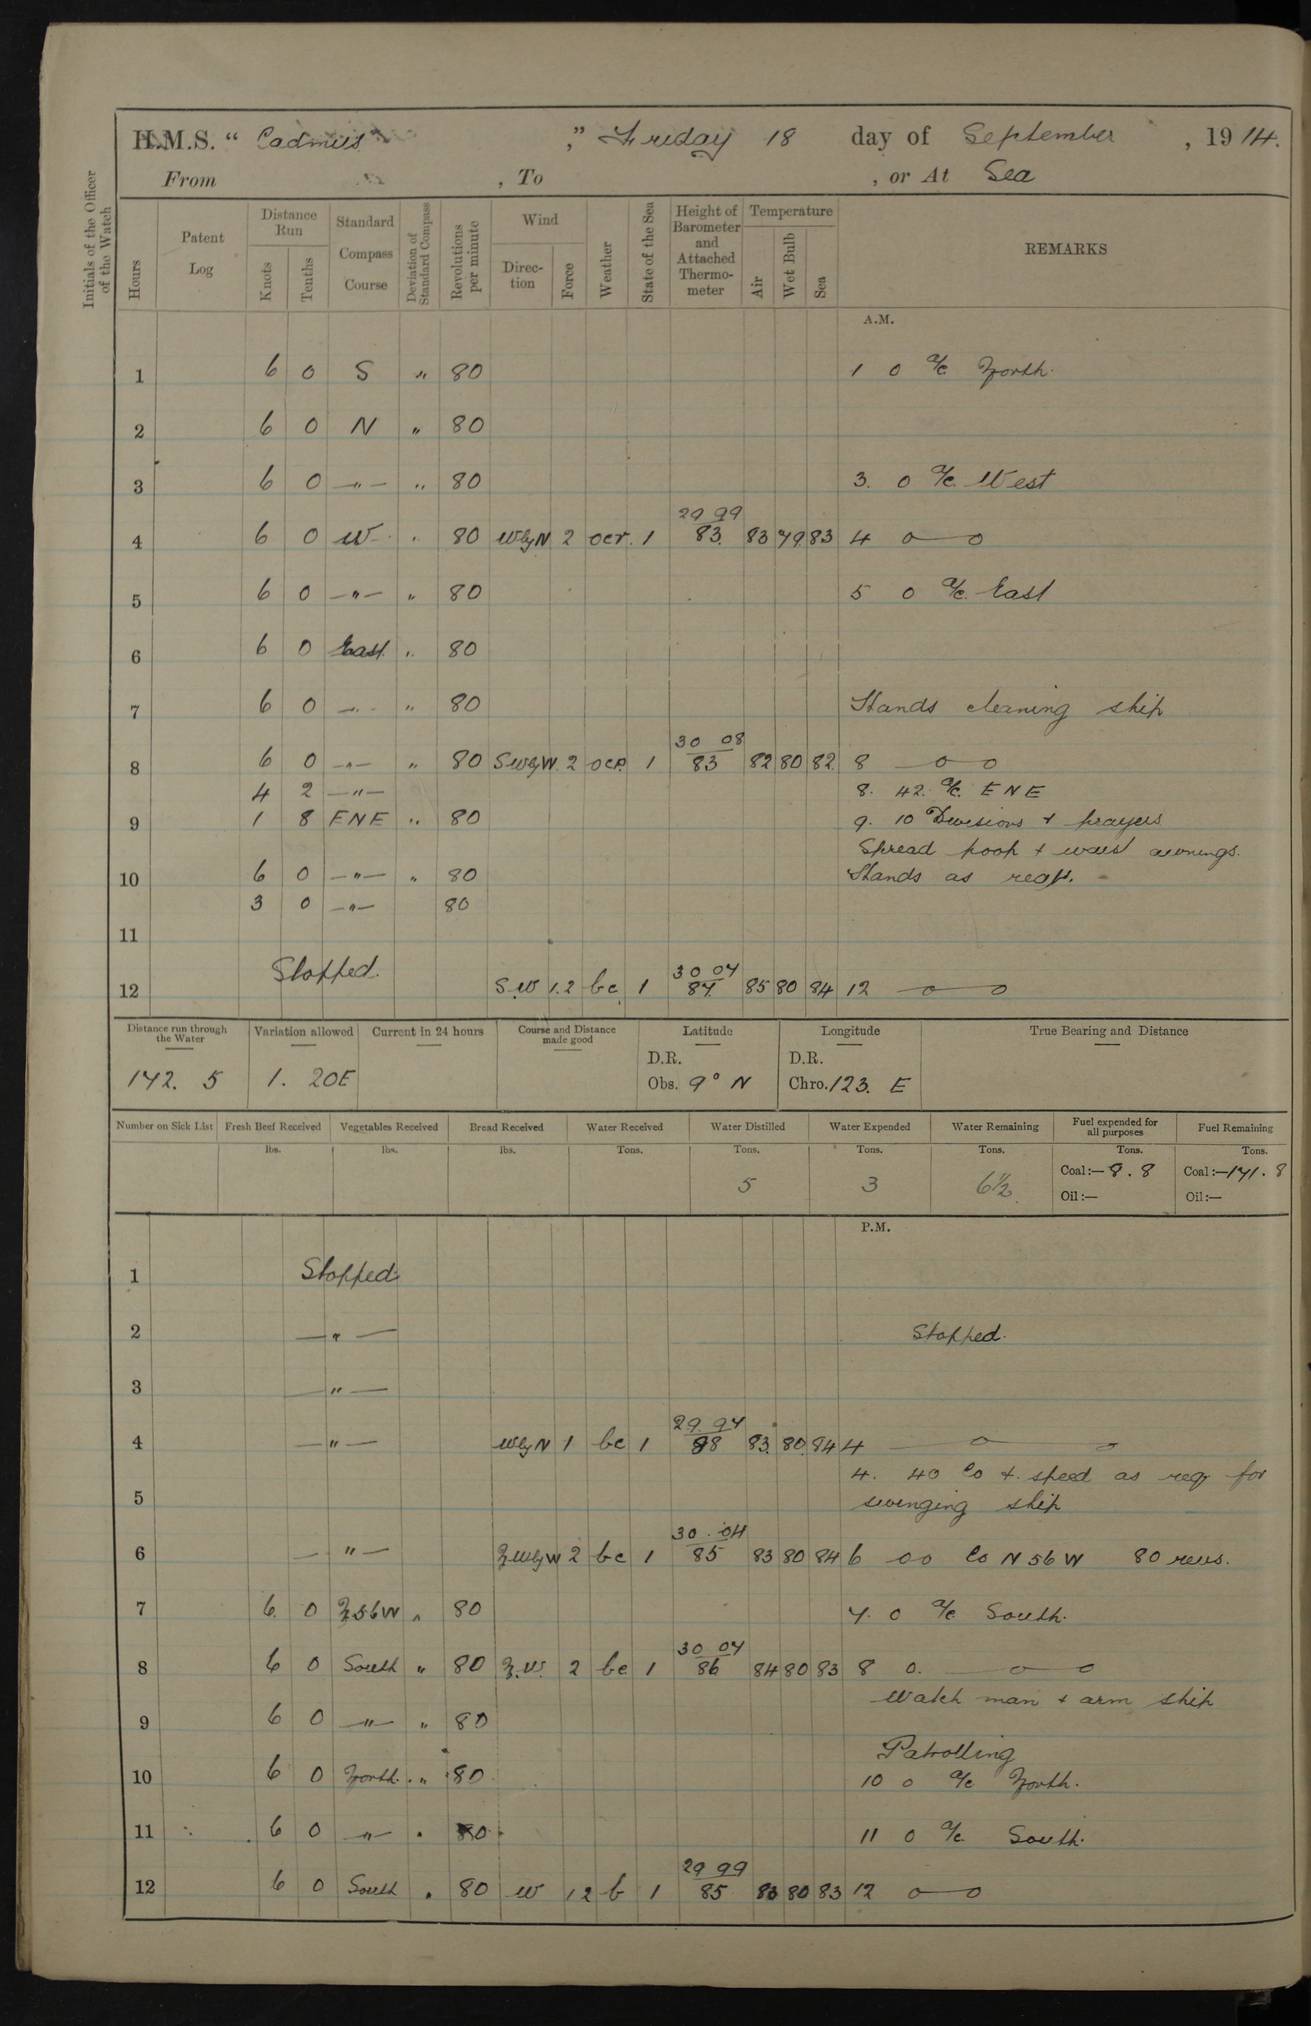 H.M.S. “ Cadmus ” Friday 18 day of September , 19 14.
From , To , or At Sea
Initials of the Officer of the Watch
Hours
Patent Log
Distance Run
Knots
Tenths
Standard Compass Course
Deviation of Standard Compass
Revolutions per minute
Wind
Direction
Force
Weather
State of the Sea
Height of Barometer and Attached Thermometer
Temperature
Air
Wet Bulb
Sea
REMARKS
A.M.
1 6 0 S „ 80 1 0 a/c North.
2 6 0 N „ 80
3 6 0 —„— „ 80 3. 0 a/c West
29 99
4 6 0 W . 80 WbyN 2 ocr. 1 83. 83 79 83 4 o—o
5 6 0 —„— „ 80 5 0 a/c East
6 6 0 East „ 80
7 6 0 —„— „ 80 Hands cleaning ship
30 08
8 6 0 —„— „ 80 SWbyW 2 ocp. 1 83 82 80 82. 8 —o—o
4 2 —„— 8. 42. a/c ENE
9 1 8 ENE „ 80 9. 10 Divisions & prayers
Spread poop & waist awnings.
10 6 0 —„— „ 80 Hands as reqd.
3 0 —„— 80
11
30 04
12 Stopped. S.W 1.2 bc 1 84. 85 80 84 12 —o—o
Distance run through the Water
Variation allowed
Current in 24 hours
Course and Distance made good
Latitude
Longitude
True Bearing and Distance
D.R. D.R.
142. 5 1. 20E Obs. 9° N Chro. 123. E
Number on Sick List Fresh Beef Received Vegetables Received Bread Received Water Received Water Distilled Water Expended Water Remaining Fuel expended for all purposes Fuel Remaining
lbs. lbs. lbs. Tons. Tons. Tons. Tons. Tons. Tons.
5 3 6½ Coal:— 8.8 Coal:— 141.8
Oil:— Oil:—
P.M.
1 Stopped.
2 —„— Stopped.
3 —„—
29. 94
4 —„— WbyN 1 bc 1 88 83. 80. 84 4 —o—o
4. 40 Co & speed as req for
5 swinging ship
30 .04
6 —„— NWbyW 2 bc 1 85 83 80 84 6 oo Co N56W 80 revs.
7 6. 0 N56W „ 80 7. 0 a/c South.
30 04
8 6 0 South „ 80 N.W. 2 bc 1 86 84 80 83 8 0. —o—o
Watch man & arm ship
9 6 0 —„— „ 80
Patrolling
10 6 0 North. „ 80 10 0 a/c North.
11 6 0 —„— . 80 11 0 a/c South.
29 99
12 6 0 South „ 80 W 12 b 1 85 83 80 83 12 o—o